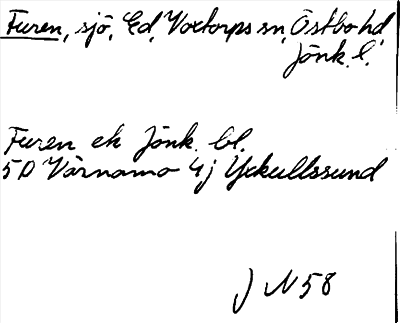 Furen, sjö, Ed, Voxtorps sn, Östbo hd,
Jönk. l.
Furen ek Jönk. bl.
5D Värnamo 4j Yxkullssund
J N 58